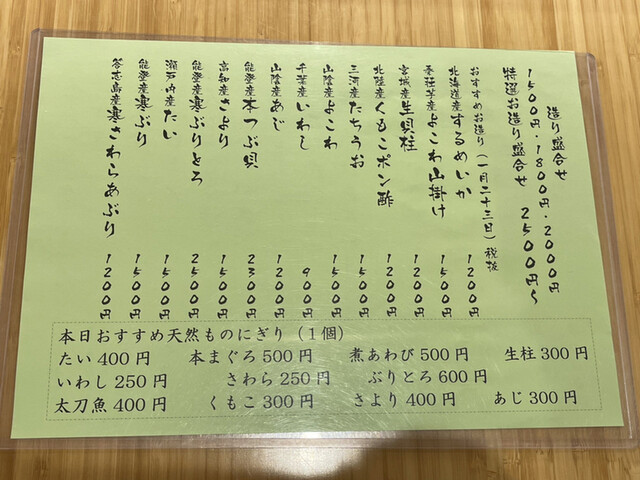 造り盛合せ
1500円・1800円・2000円
特選お造り盛合せ 2500円~
おすすめお造り(一月二十三日)税抜
北海道産するめいか 1200円
壱岐産よこわ山掛け 1500円
宮城産生貝柱 1200円
北陸産くもこポン酢 1200円
三河産たちうお 1500円
山陰産よこわ 1500円
千葉産いわし 900円
山陰産あじ 1200円
能登産本つぶ貝 2300円
高知産さより 1500円
能登産寒ぶりとろ 2500円
瀬戸内産たい 1500円
能登産寒ぶり 1500円
答志島産寒さわらあぶり 1200円
本日おすすめ天然ものにぎり(1個)
たい400円 本まぐろ500円 煮あわび500円 生柱300円
いわし250円 さわら250円 ぶりとろ600円
太刀魚400円 くもこ300円 さより400円 あじ300円